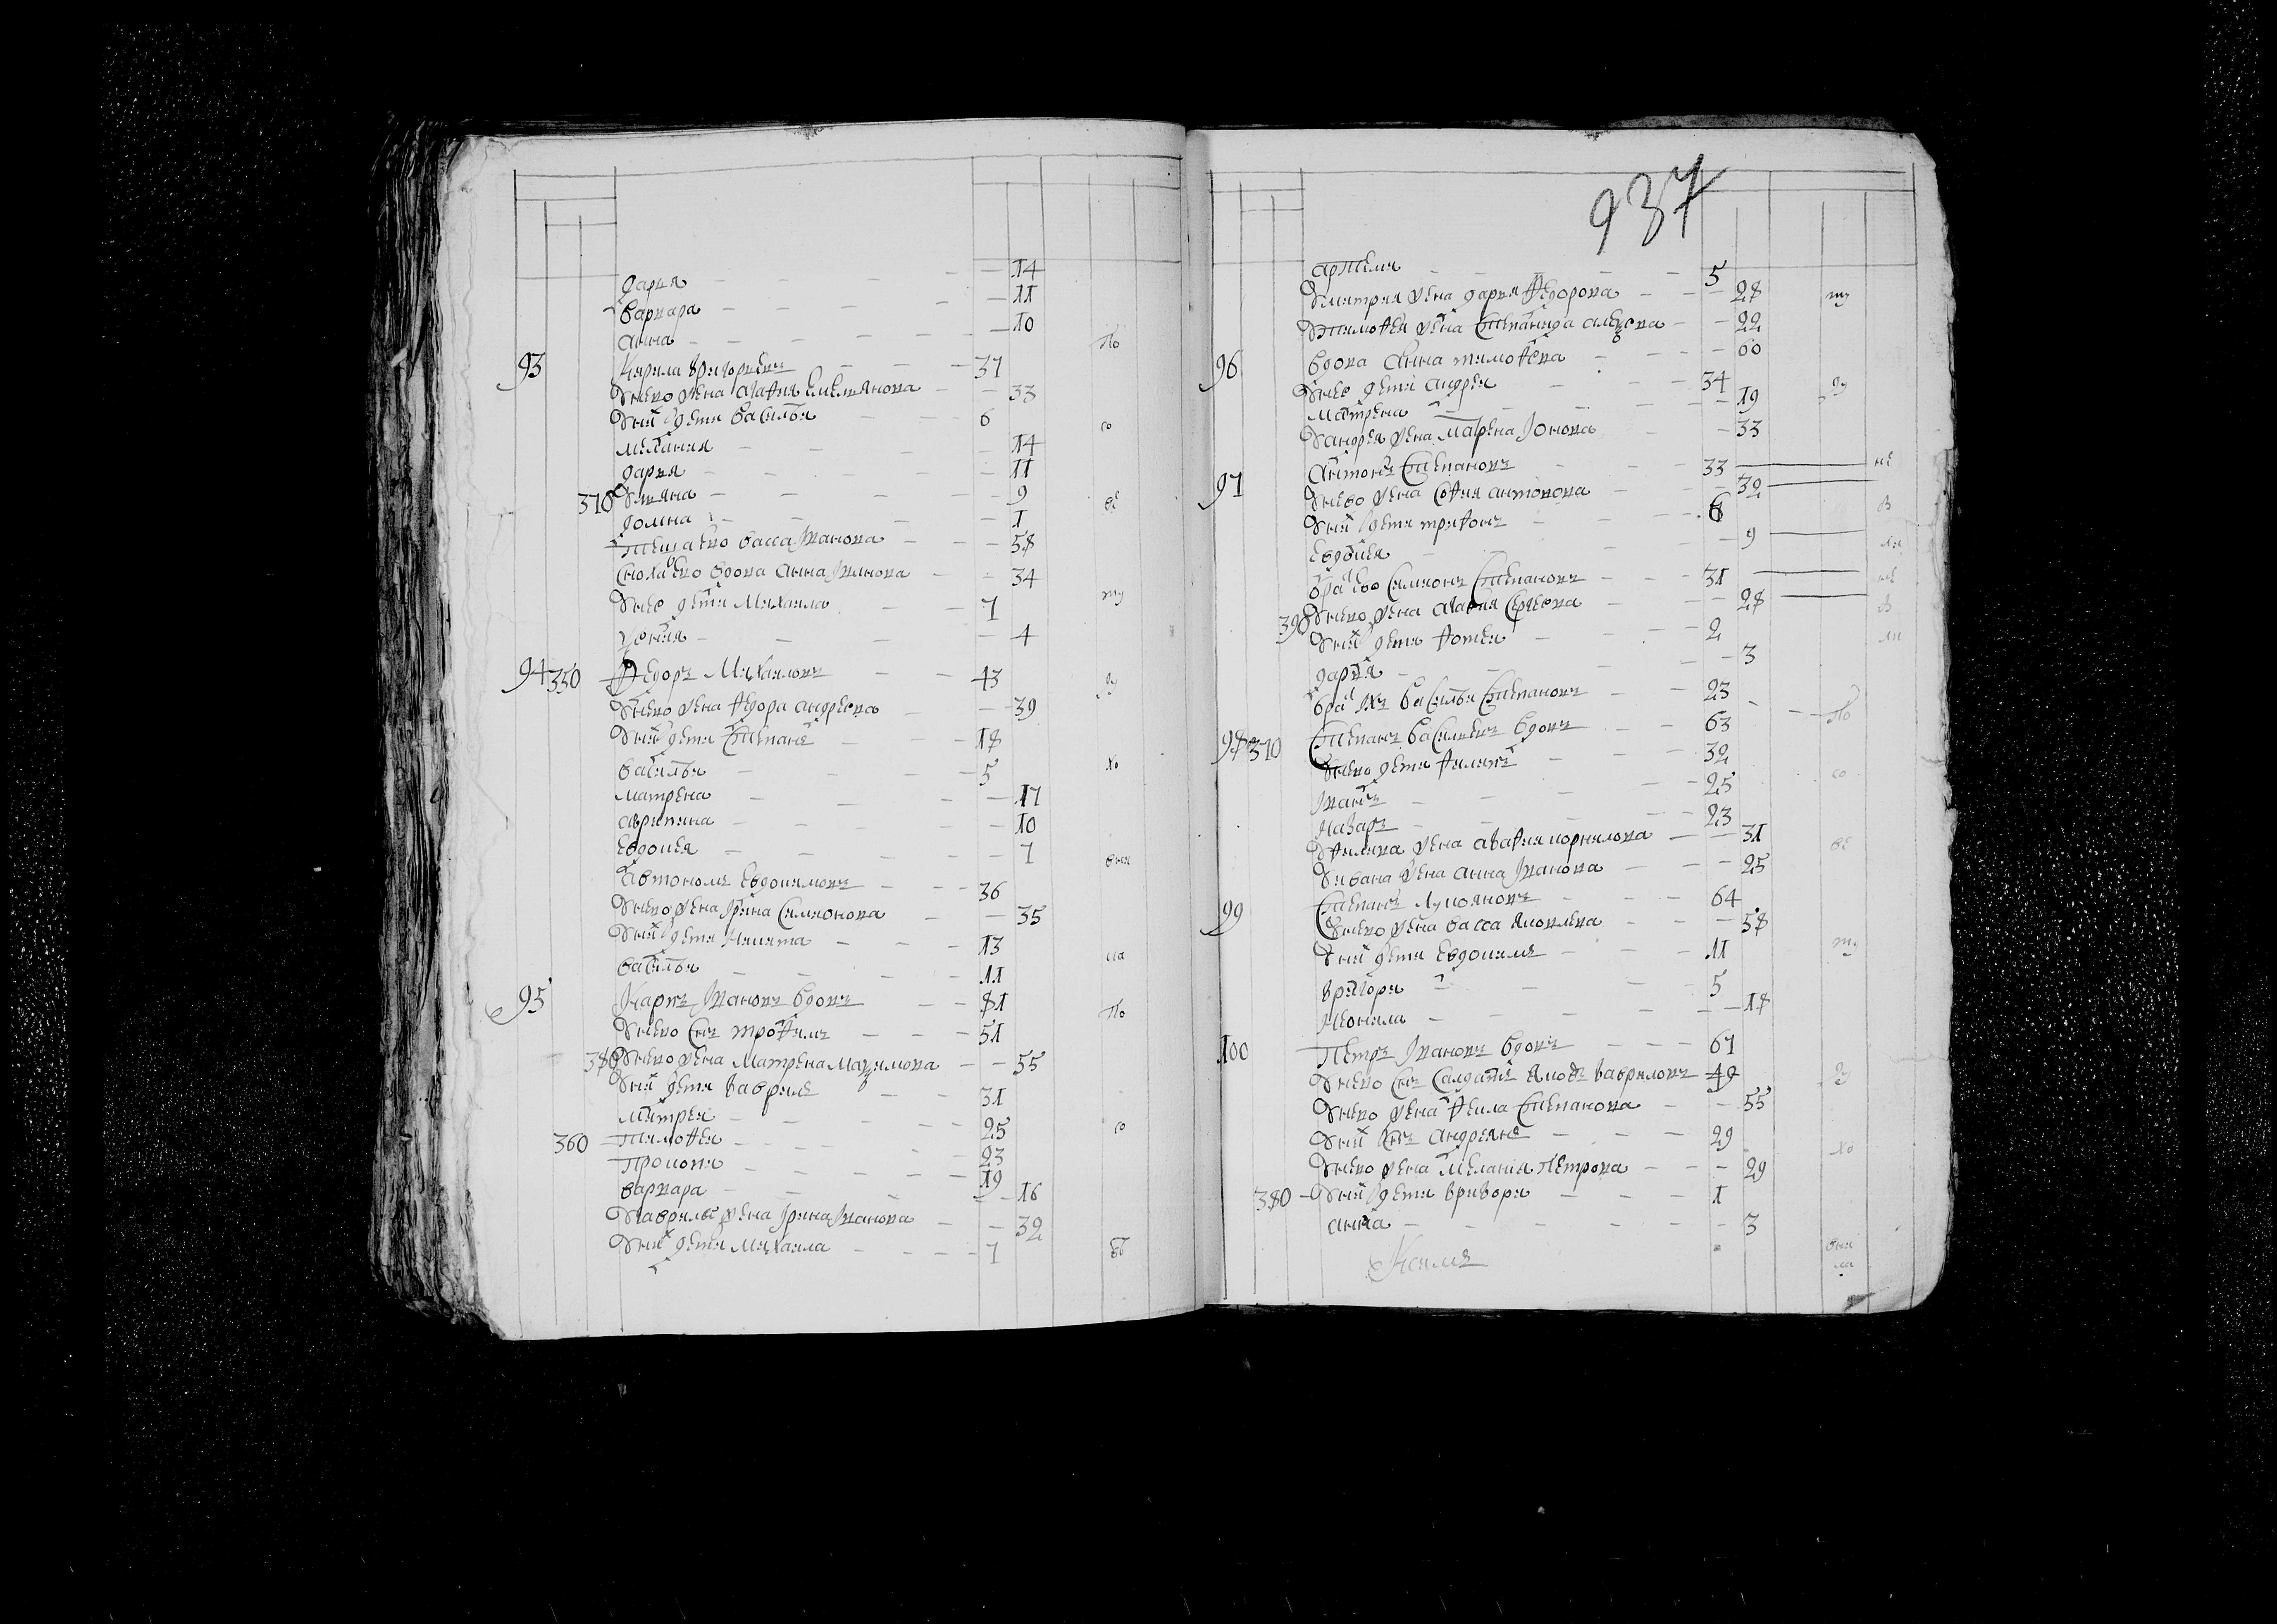 дарья — 14
варвара — 11
анна — 10
по
93 Кирила Григорьевъ — 37
Унево жена агафия Емельянова — 33
Уних дети василья 6
со
мелания — 14
дария — 11
370 Ульяна — 9
ве
домна — 1
теща ево васса Иванова — 58
сноха ево вдова анна — 34
Унее дети Михаила — 7
ту
4
94 350 Федоръ Михаиловъ — 43
ду
Унево жена федора андреева — 39
Уних дети Степанъ — 18
василья — 5
хо
матрена — 17
аграпина — 10
Евдокия — 7
вни
автономъ Евдокимовъ — 36
Унево жена Ирина Симионова — 35
Уних дети Никита — 13
василья — 11
ма
95 Карпъ Ивановъ вдовъ — 81
по
Унево снъ трофимъ — 51
380 Унево жена Матрена Мазимова — 55
Уних дети гаврила 31
митрея — 25
со
360 тимофея — 23
прокопи — 19
варвара — 16
Угаврилы жена Ирина Иванова — 32
Уних дети Михаила — 1
937
артемя — 5
Умитрия жена дарья Федорова — 28
ту
Утимофея жена Степанида — 22
96 вдова анна тимофева — 60
Унее дети андрея — 34
ду
матрена — 19
Уандрея жена Марена Ионова — 33
97 антонъ Степановъ — 33
не
Унево жена София антонова — 32
Уних дети трифонъ — 6
в
Евдокия — 9
ли
брат ево Симионъ Степановъ — 31
не
390 Унево жена агафия Сергеева — 28
в
Уних дети фотея — 2
ли
дария — 3
брат их василья Степановъ — 23
по
98 370 Степанъ василиевъ вдовъ — 63
Унево дети филипъ — 32
со
Иванъ — 25
Назаръ — 23
Уфилипа жена агафия корнилова — 31
ве
Уивана жена анна Иванова — 25
99 Степанъ Лукояновъ — 64
Унево жена васса Яковлева — 58
Уних дети Евдокимъ — 11
ту
григори — 5
Неонила — 18
100 Петръ Ивановъ вдовъ — 67
Унево снъ Салдатъ Яковъ гавриловъ 49
ду
Унево жена фекла Степанова — 55
Уних снъ андреянъ — 29
хо
Унево жена Мелания Петрова — 29
380 Уних дети григори — 1
анна — 3
вни
ма